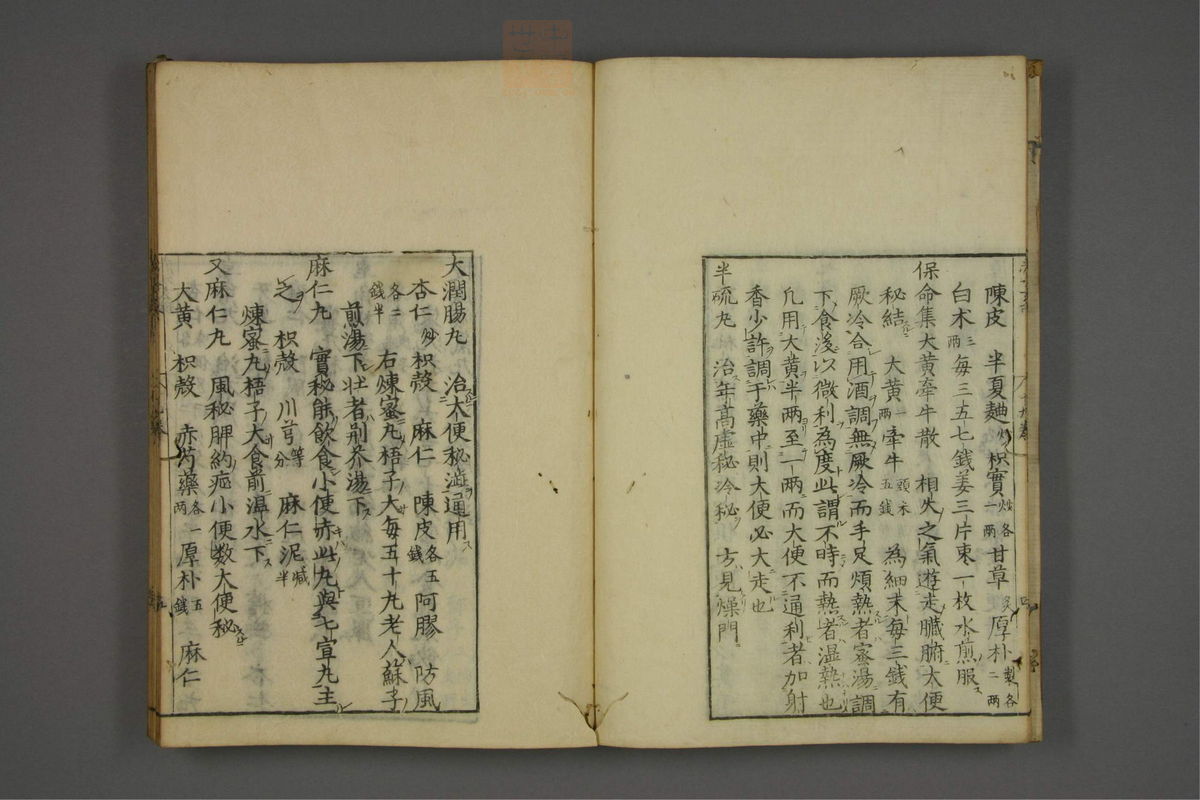 陳皮　半夏麯炒枳實炒各一兩甘草炙厚朴製各二兩
白术三兩每三五七錢姜三片棗一枚水煎服
保命集大黄牽牛散　相失之氣遊走臟腑大便
秘結　大黄一兩牽牛頭末五錢　為細末每三錢有
厥冷合用酒調無厥冷而手足煩熱者蜜湯調
下食後以微利為度此謂不時而熱者湿熱也
凢用大黄半兩至一兩而大便不通利者加射
香少許調于藥中則大便必大走也
半硫丸　治年高虚秘冷秘　方見燥門
大潤腸丸　治大便秘澁通用
杏仁炒枳殻　麻仁　陳皮各五錢阿膠　防風
各二錢半　右煉蜜丸梧子大每五十丸老人蘇子
煎湯下壮者荆芥湯下
麻仁丸　實秘能飲食小便赤此丸與七宣丸主
之　枳殻　川芎等分　麻仁泥減半
煉蜜丸梧子大食前温水下
又麻仁丸　風秘脾約症小便数大便秘
大黄　枳殻　赤芍藥各一兩　厚朴五錢　麻仁